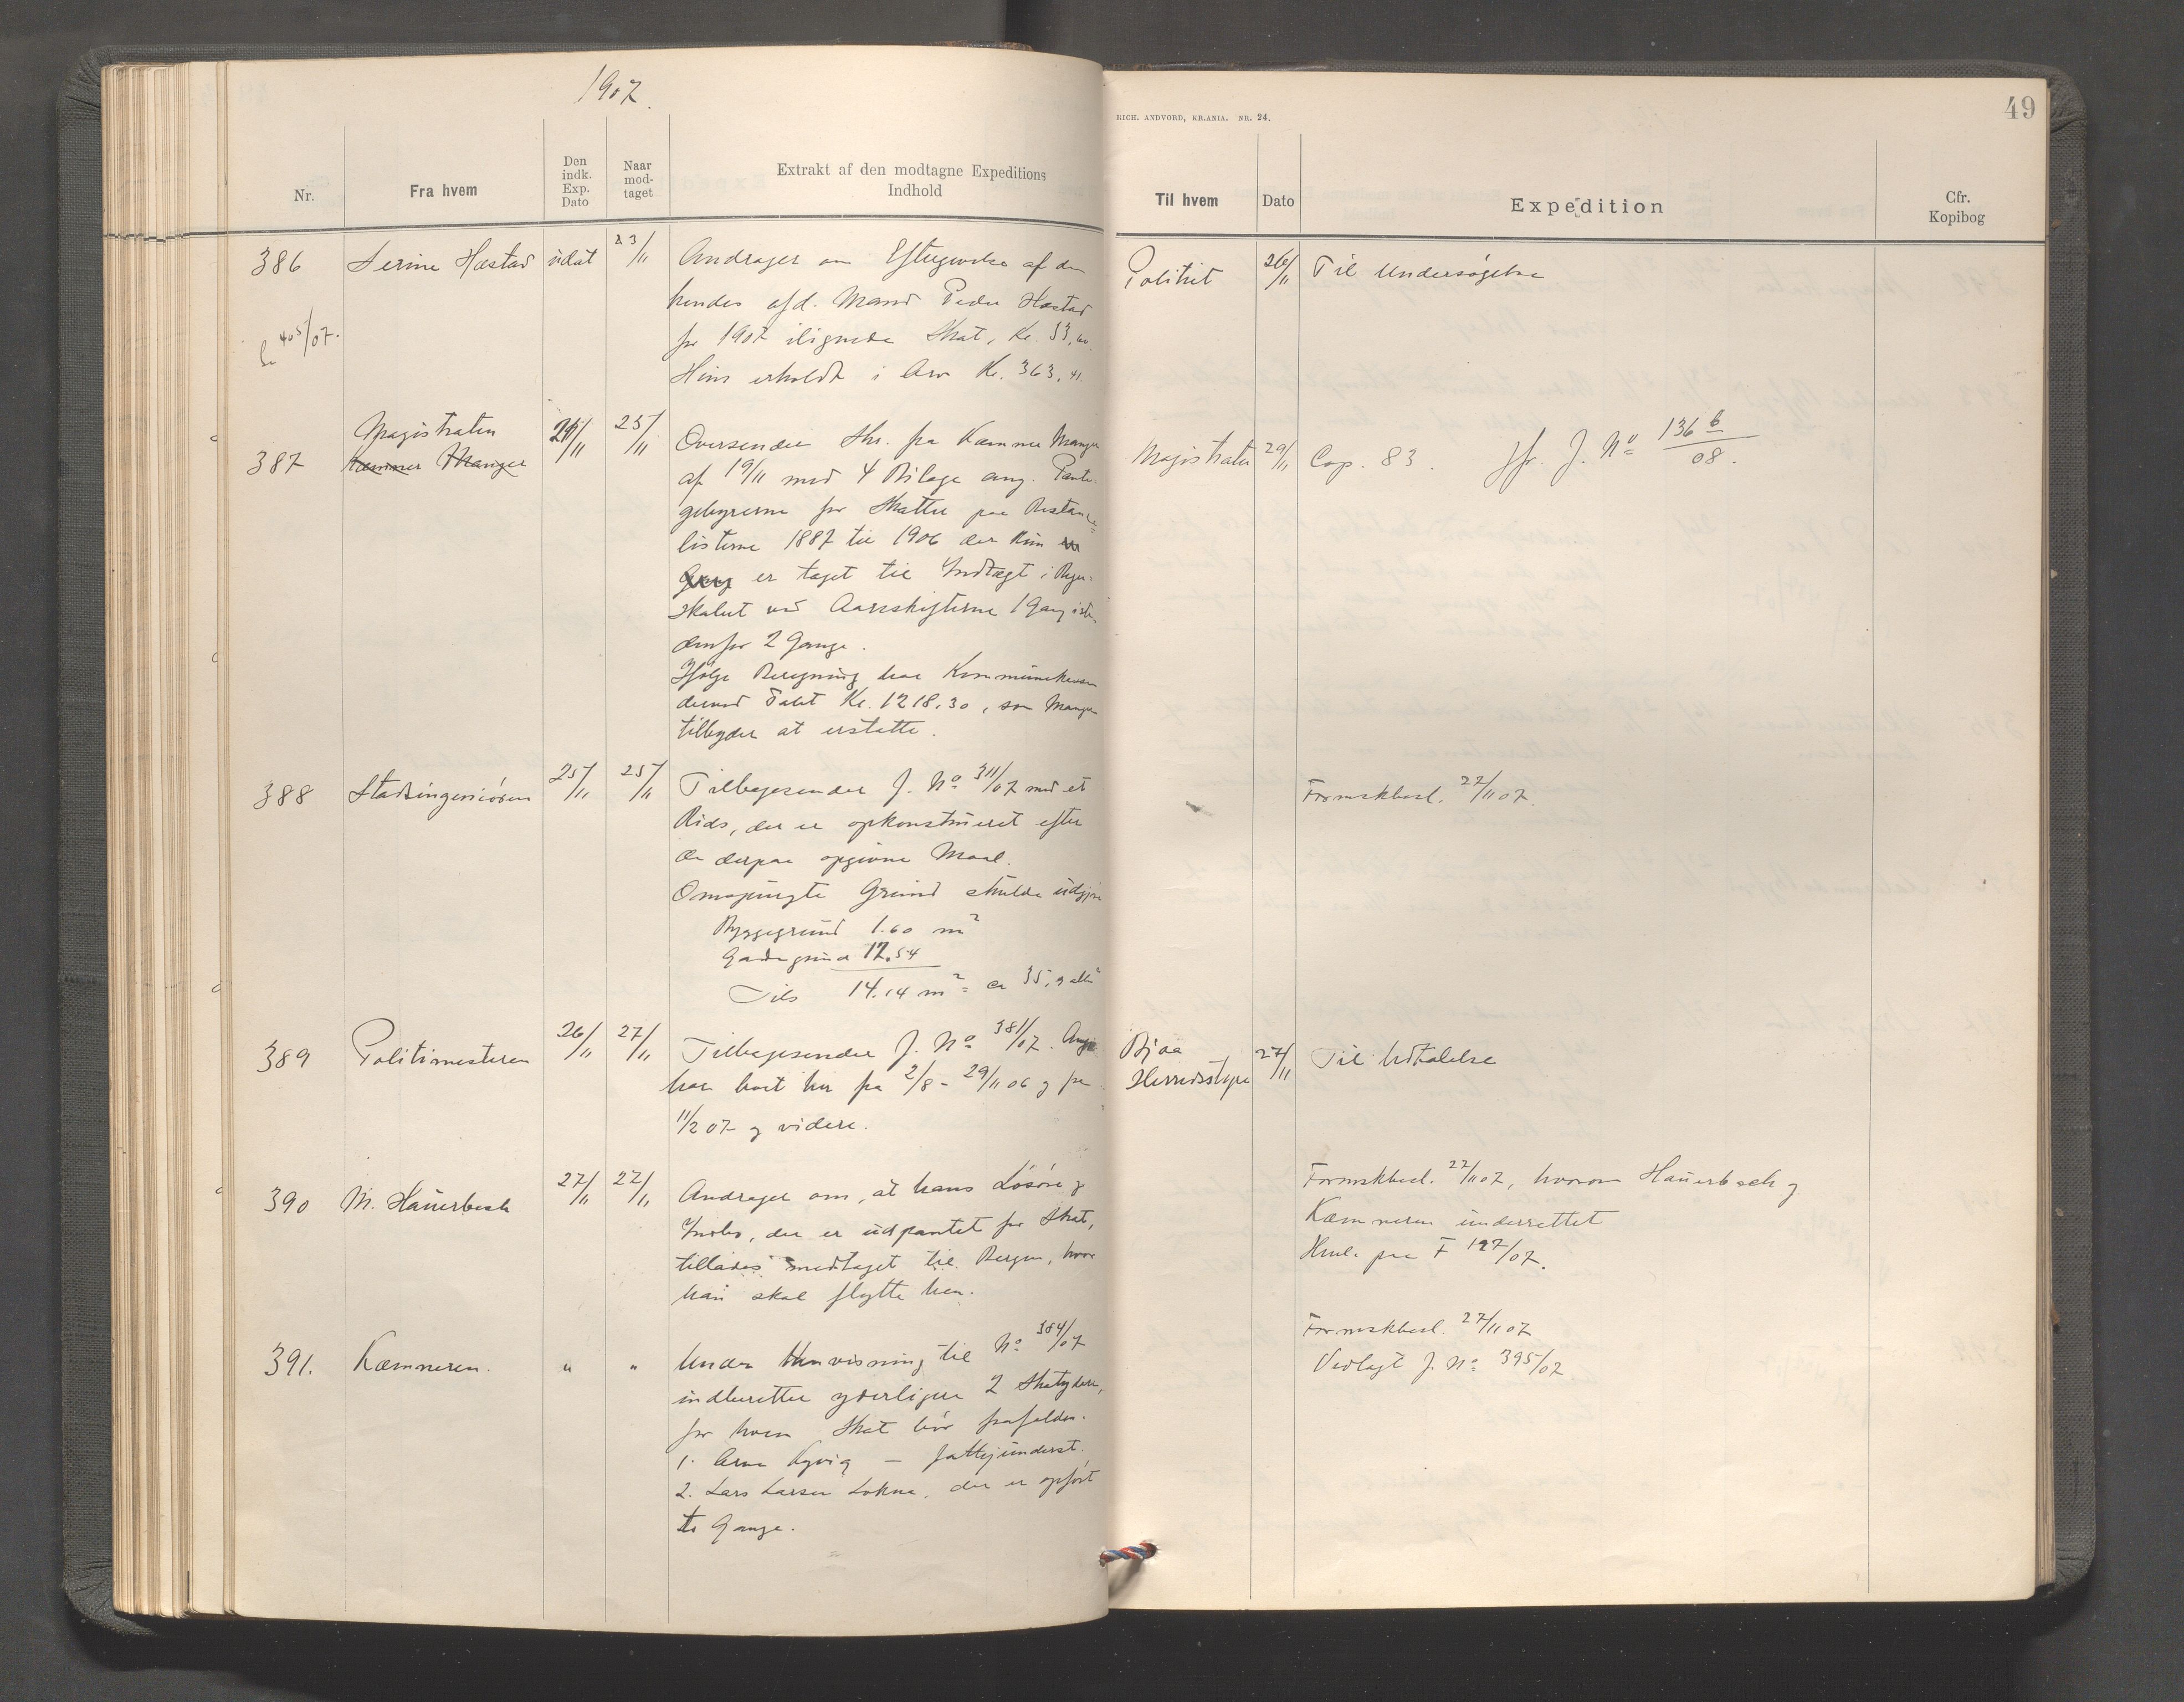 1907.
Nr.
Fra hvem
Den
indk.
Exp.
Dato
Naar
mod-
taget
Extrakt af den modtagne Expeditions
Indhold
386
Serine Hæstad
udat
23/11
Andrager om Eftergivelse af den
hendes afd. Mand Peder Hæstad
for 1907 ilignede Skat, Kr. 33,00.
Hun erholdt i Arv Kr. 363,41.
Se 405/07.
387
Magistraten
Kæmner Manger
/11
25/11
Oversender Skr. fra Kæmner Manger
af 19/11 med 4 Bilage ang. Pante-
gebyrerne for Skatter paa Restance-
listerne 1887 til 1906 der kun
Gang er taget til Indtægt i Regn-
skabet ved Aarsskifterne 1 Gang iste-
denfor 2 Gange.
Ifølge Beregning har Kommunekassen
derved tabt Kr. 1218,30, som Manger
tilbyder at erstatte.
388
Stadsingeniøren
25/11
25/11
Tilbagesender J. No 311/07 med et
Rids, der er opkonstrueret efter
de derpaa opgivne Maal.
Omspurgte Grund skulde udgjøre
Byggegrund 1.60 m2
Gadegrund 12.54
Tils 14.14 m2 = ca 35,9 al2
389
Politimesteren
26/11
27/11
Tilbagesender J. No 381/07.
har boet her fra 2/8 - 29/11 06 og fra
11/2 07 og videre.
390
M. Hauerbach
27/11
27/11
Andrager om, at hans Løsøre og
Indbo, der er udpantet for Skat,
tillades medtaget til Bergen, hvor
han skal flytte hen.
391.
Kæmneren.
"
"
Under Henvisning til No 384/07
indberetter yderligere 2 Skatydere,
for hvem Skat bør frafaldes.
1. Arne Kyvig — fattigunderst.
2. Lars Larsen Lokna, der er opført
to Gange.
RICH. ANDVORD, KR.ANIA. NR. 24.
49
Til hvem
Dato
Expedition
Cfr.
Kopibog
Politiet
26/11
Til Undersøgelse
Magistraten
29/11
Cop. 83. Jfr. J. No 136 b/08.
Formskbesl. 27/11 07.
Bjoa
Herredsstyre
27/11
Til Udtalelse
Formskbesl. 27/11 07, hvorom Hauerbach og
Kæmneren underrettet
Henl. paa F 127/07.
Formskbesl. 27/11 07
Vedlagt J. No 395/07